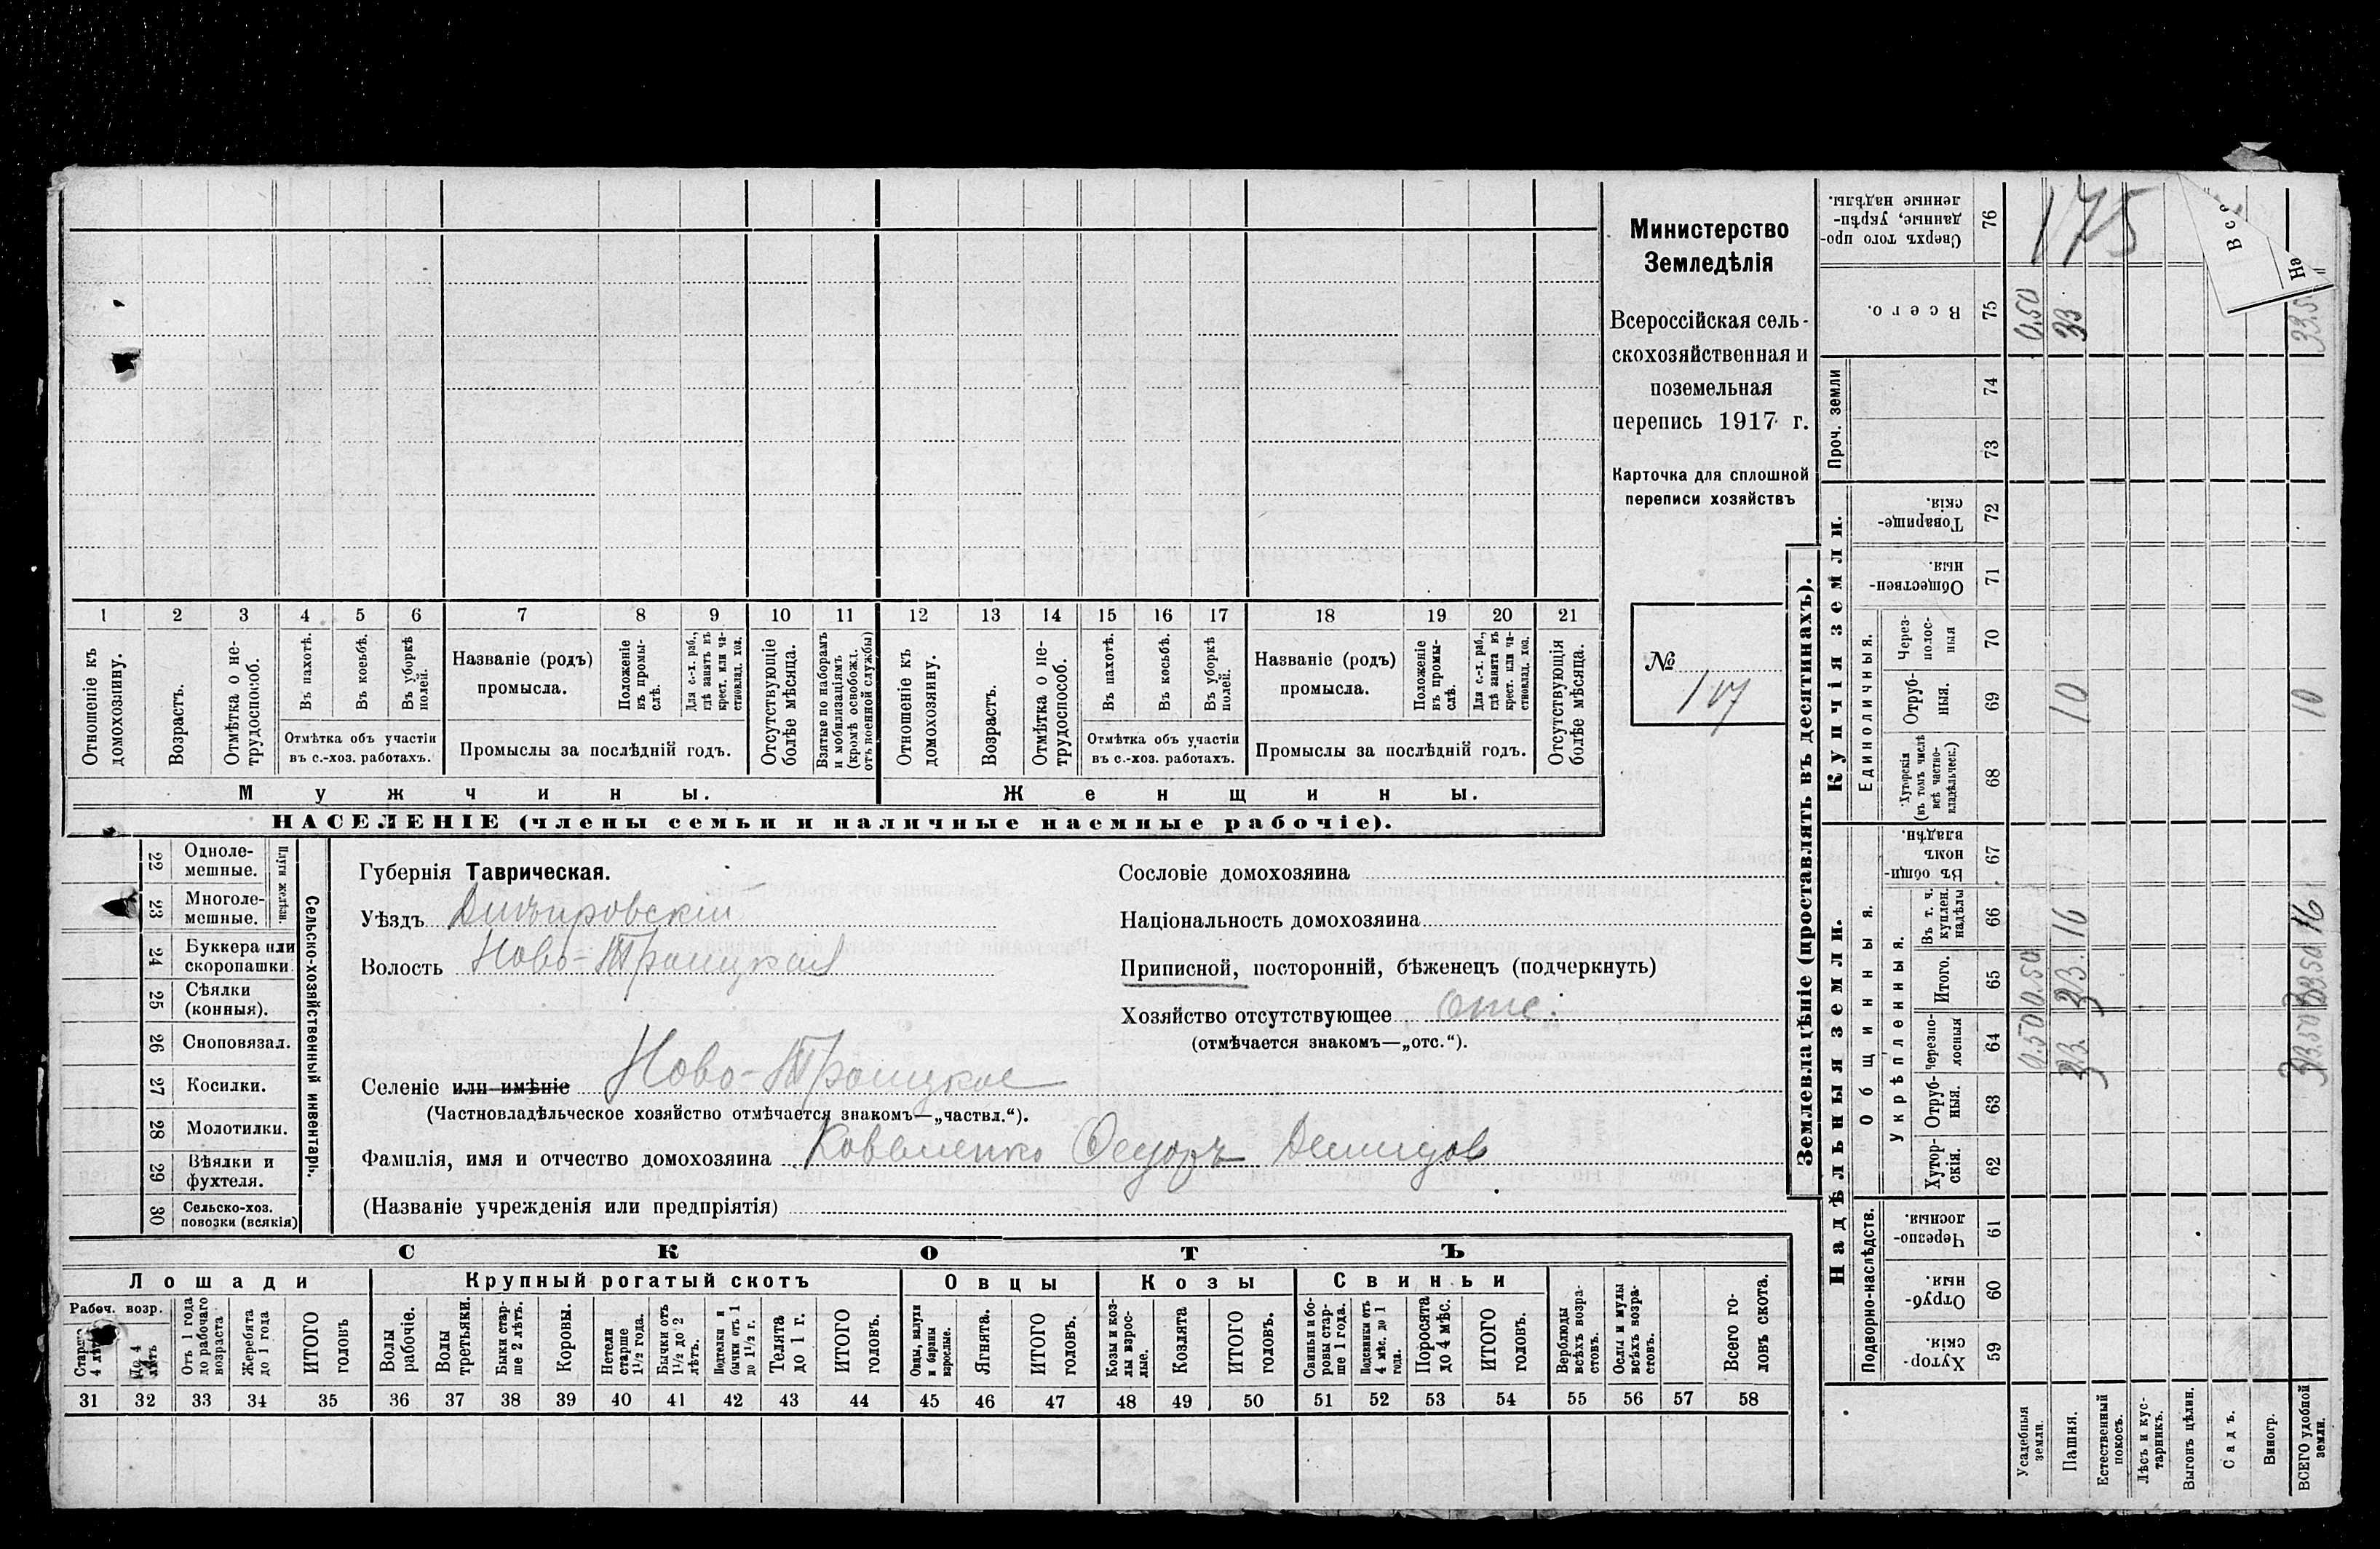 1 2 3 4 5 6 7 8 9 10 11 12 13 14 15 16 17 18 19 20 21
Отношеніе къ домохозяину.
Возрастъ.
Отмѣтка о не-трудоспособ.
Въ пахотѣ.
Въ косьбѣ.
Въ уборкѣ полей.
Отмѣтка объ участіи
въ с.-хоз. работахъ.
Названіе (родъ)
промысла.
Положеніе въ промы-слѣ.
Для с.-х. раб., гдѣ занятъ въ крест. или ча-стновлад. хоз.
Промыслы за послѣдній годъ.
Отсутствующіе болѣе мѣсяца.
Взятые по наборамъ и мобилизаціямъ (кромѣ освобожд. отъ военной службы)
Отношеніе къ домохозяину.
Возрастъ.
Отмѣтка о не-трудоспособ.
Въ пахотѣ.
Въ косьбѣ.
Въ уборкѣ полей.
Отмѣтка объ участіи
въ с.-хоз. работахъ.
Названіе (родъ)
промысла.
Положеніе въ промы-слѣ.
Для с.-х. раб., гдѣ занята въ крест. или ча-стновлад. хоз.
Промыслы за послѣдній годъ.
Отсутствующія болѣе мѣсяца.
Мужчины. Женщины.
НАСЕЛЕНІЕ (члены семьи и наличные наемные рабочіе).
Министерство
Земледѣлія
Всероссійская сель-
скохозяйственная и
поземельная
перепись 1917 г.
Карточка для сплошной
переписи хозяйствъ
№
107
Сельско-хозяйственный инвентарь.
Плуги желѣзн.
22 Однолемешные.
23 Многолемешные.
24 Буккера или скоропашки
25 Сѣялки (конныя).
26 Сноповязал.
27 Косилки.
28 Молотилки.
29 Вѣялки и фухтеля.
30 Сельско-хоз. повозки (всякія)
Губернія Таврическая.
Уѣздъ Днѣпровскій
Волость Ново-Троицкая
Селеніе или имѣніе Ново-Троицкое
(Частновладѣльческое хозяйство отмѣчается знакомъ—„частвл.“).
Фамилія, имя и отчество домохозяина Коваленко Федоръ Демидов
(Названіе учрежденія или предпріятія)
Сословіе домохозяина
Національность домохозяина
Приписной, посторонній, бѣженецъ (подчеркнуть)
Хозяйство отсутствующее отс.
(отмѣчается знакомъ—„отс.“).
СКОТЪ
Лошади Крупный рогатый скотъ Овцы Козы Свиньи
Рабоч. возр.
Старше 4 лѣтъ
До 4 лѣтъ
Отъ 1 года до рабочаго возраста
Жеребята до 1 года
ИТОГО головъ
Волы рабочіе.
Волы третьяки.
Быки стар-ше 2 лѣтъ.
Коровы.
Нетели старше 1½ года.
Бычки отъ 1½ до 2 лѣтъ.
Подтелки и бычки отъ 1 до 1½ г.
Телята до 1 г.
ИТОГО головъ.
Овцы, валухи и бараны взрослые.
Ягнята.
ИТОГО головъ.
Козы и коз-лы взрос-лые.
Козлята
ИТОГО головъ.
Свиньи и бо-ровы стар-ше 1 года.
Подсвинки отъ 4 мѣс. до 1 года.
Поросята до 4 мѣс.
ИТОГО головъ.
Верблюды всѣхъ возра-стовъ.
Ослы и мулы всѣхъ возра-стовъ.
Всего го-ловъ скота.
31 32 33 34 35 36 37 38 39 40 41 42 43 44 45 46 47 48 49 50 51 52 53 54 55 56 57 58
Землевладѣніе (проставлять въ десятинахъ).
Надѣльныя земли. Купчія земли. Проч. земли
Подворно-наслѣдств. Общинныя. Единоличныя.
Укрѣпленныя.
Хутор-скія. 59
Отруб-ныя. 60
Черезпо-лосныя. 61
Хутор-скія. 62
Отруб-ныя. 63
Черезпо-лосныя 64 0.50 33 33.50
Итого. 65 0.50 33 33.50
Въ т. ч. куплен. надѣлы 66 16 16
Въ общин-номъ владѣн. 67
Хуторскія (въ томъ числѣ всѣ частно-владѣльческ.) 68
Отруб-ныя. 69 10 10
Через-полос-ныя 70
Обществен-ныя. 71
Товарище-скія. 72
73 74
Всего. 75 0.50 33 33.50
Сверхъ того про-данные, укрѣп-ленные надѣлы. 76
175
Всс
На
Усадебныя земли.
Пашня.
Естественный покосъ.
Лѣсъ и кус-тарникъ.
Выгонъ цѣлин.
Садъ.
Виногр.
ВСЕГО удобной земли.